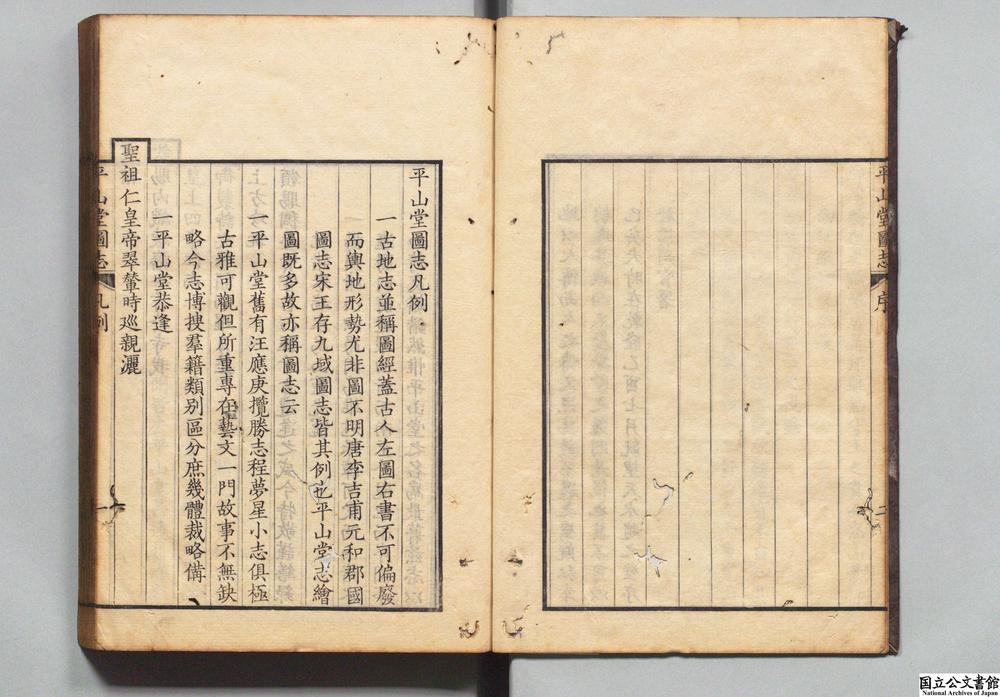 平山堂圖志
序
二
平山堂圖志凡例
一古地志並稱圖經蓋古人左圖右書不可偏廢
而輿地形勢尤非圖不明唐李吉甫元和郡國
圖志宋王存九域圖志皆其例也平山堂志繪
圖既多故亦稱圖志云
一平山堂舊有汪應庚攬勝志程夢星小志俱極
古雅可觀但所重專在藝文一門故事不無缺
略今志博搜羣籍類別區分庶幾體裁略備
一平山堂恭逢
聖祖仁皇帝翠輦時巡親灑
平山堂圖志
凡例
一
国立公文書館
National Archives of Japan